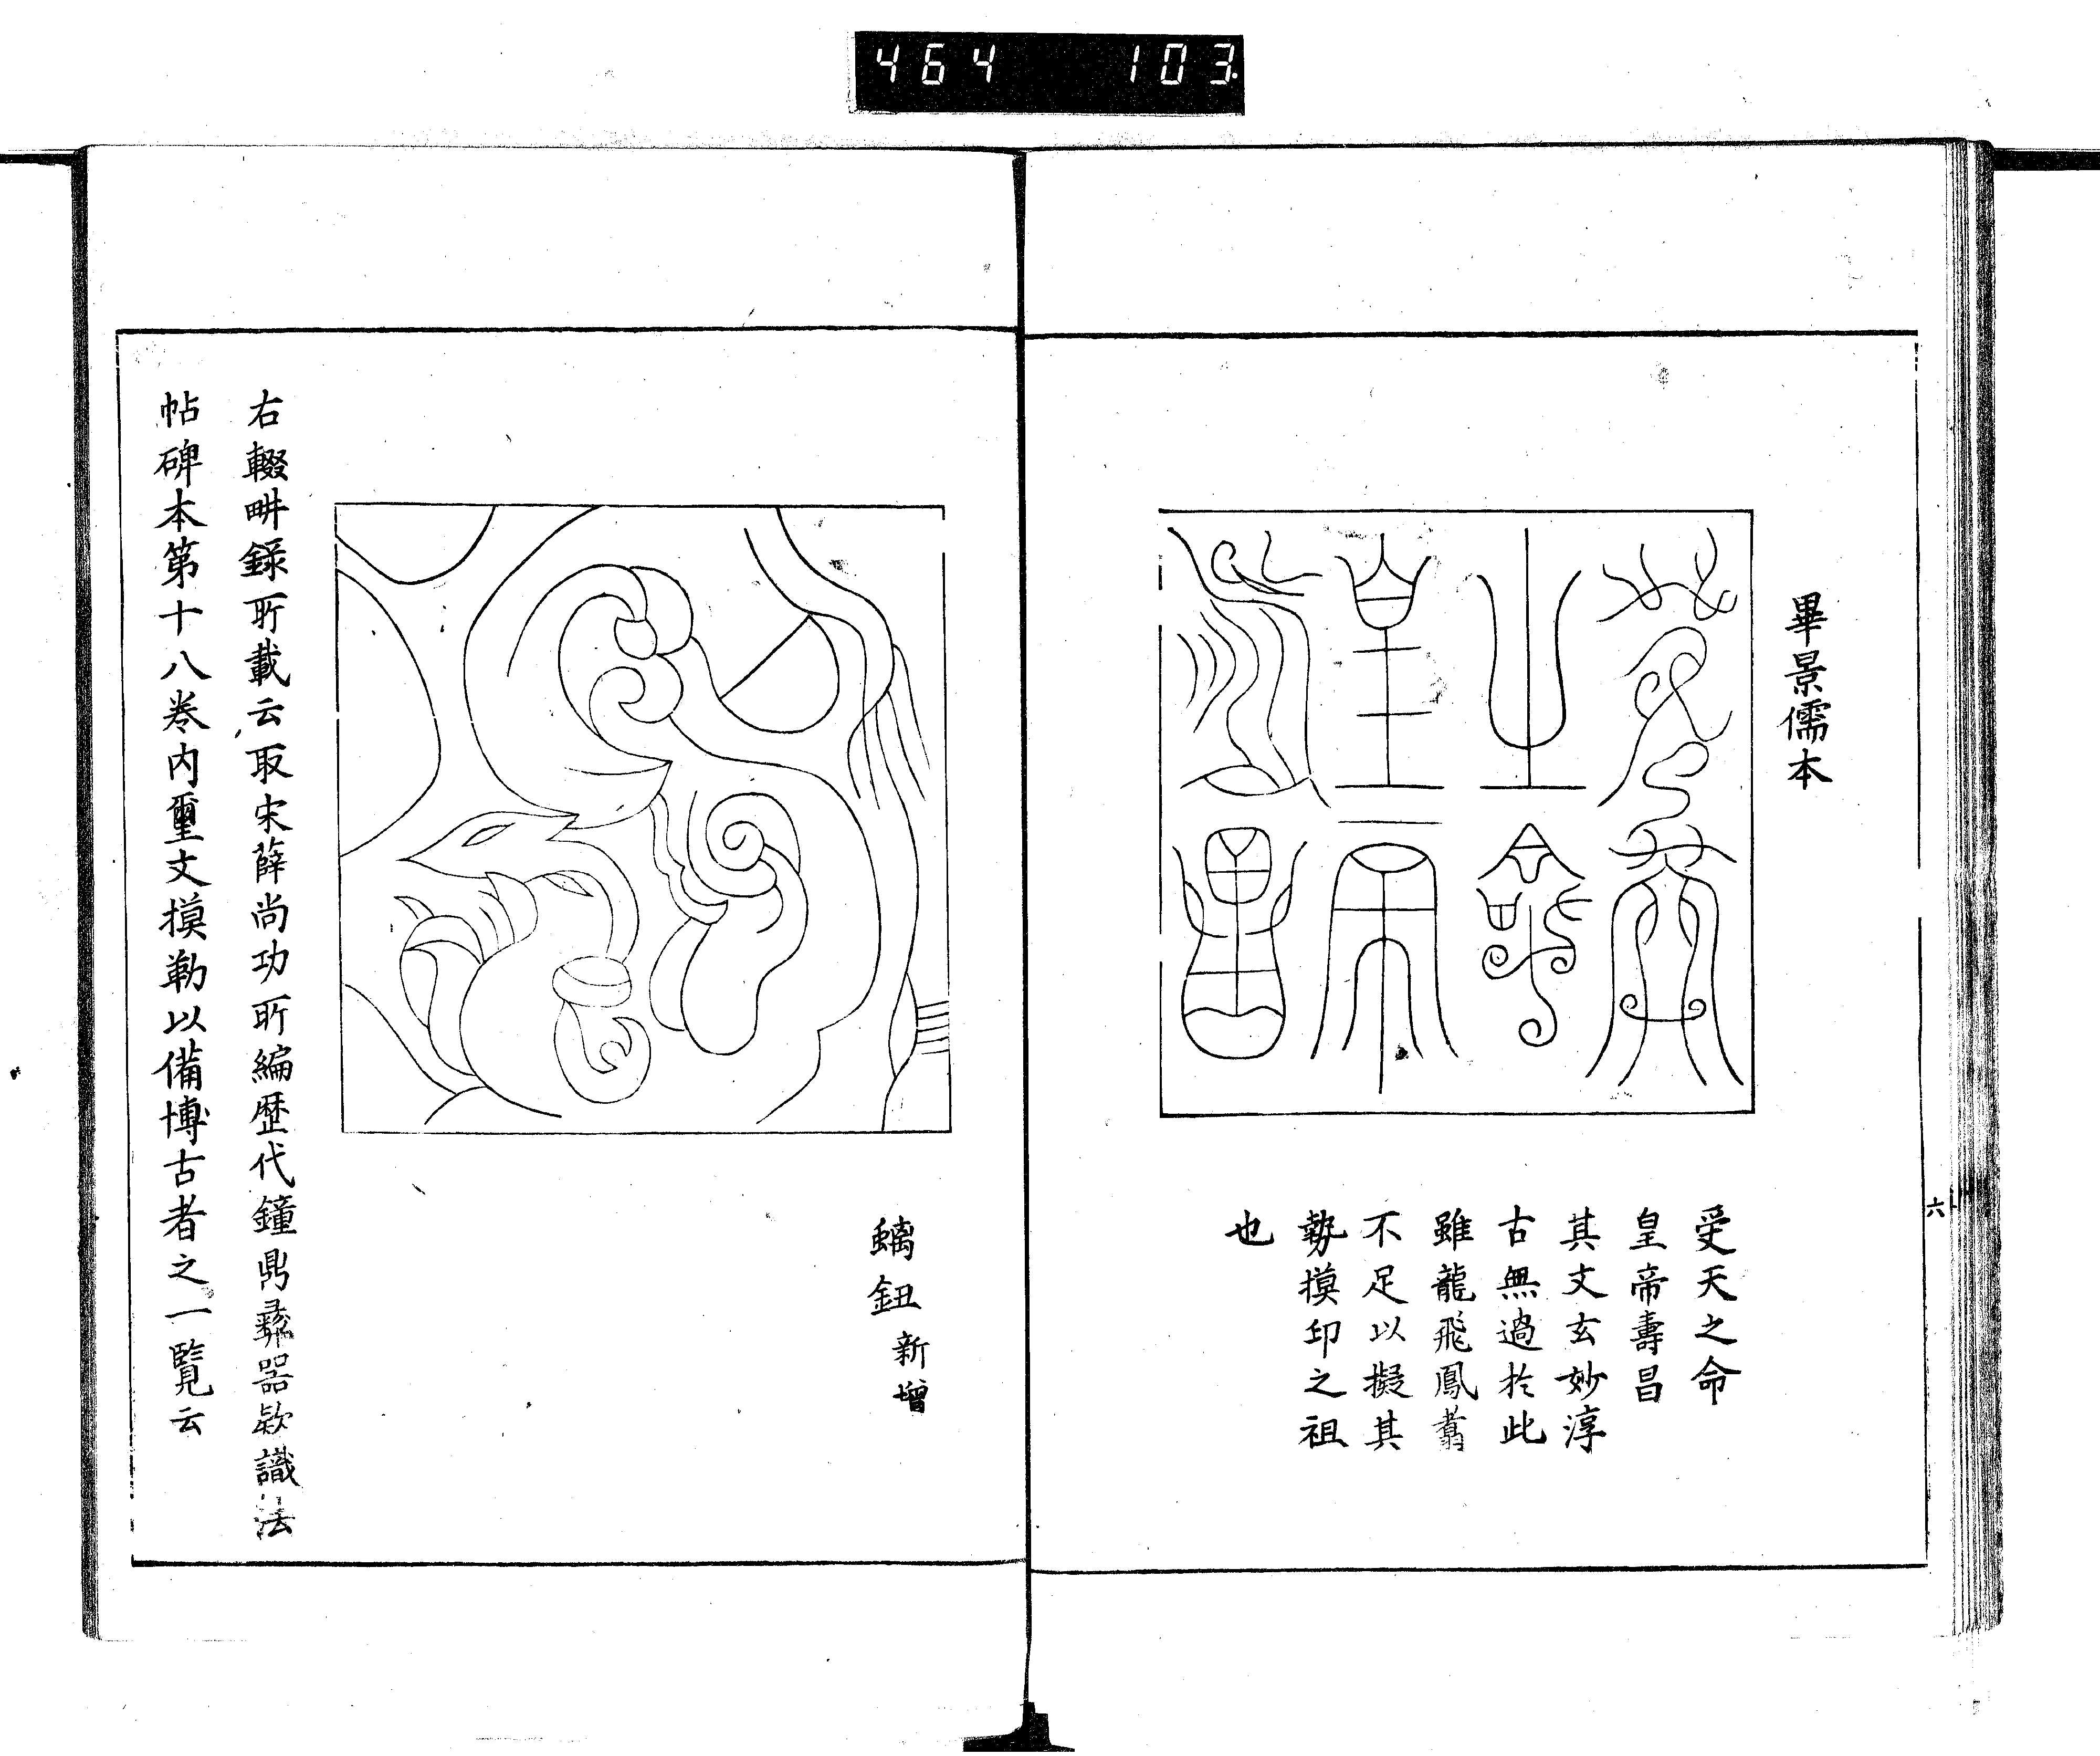 464 103
畢景儒本
受天之命
皇帝壽昌
受天之命
皇帝壽昌
其文玄妙淳
古無過於此
雖龍飛鳳翥
不足以擬其
勢摸印之祖
也
六
螭鈕新增
右輟畊錄所載云取宋薛尚功所編歷代鐘鼎彛器欵識法
帖碑本第十八卷内璽文摸勒以備博古者之一覽云